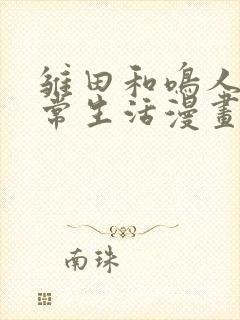 雏田和鳴人
常生活漫畫
南珠